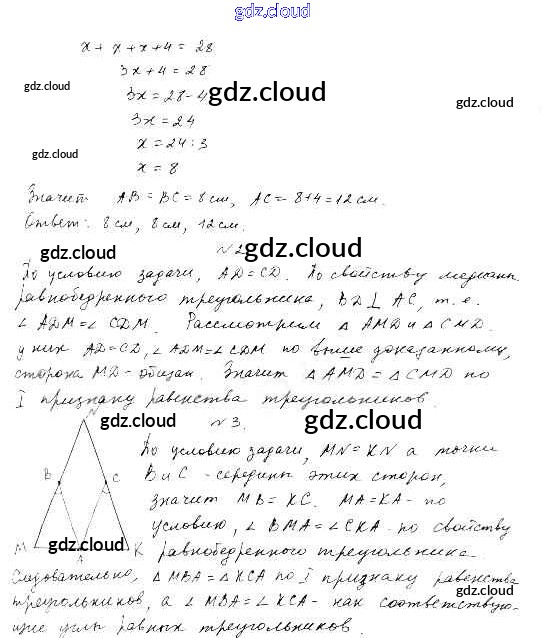 gdz.cloud
x + x + x + 4 = 28
3x + 4 = 28
gdz.cloud
3x = 28 - 4
gdz.cloud
gdz.cloud
3x = 24
x = 24 : 3
gdz.cloud
x = 8
Значит AB = BC = 8 см, AC = 8+4 = 12 см.
Ответ: 8 см, 8 см, 12 см.
N 2
gdz.cloud
По условию задачи, AD = CD. По свойству медианы
равнобедренного треугольника, BD ⊥ AC, т.е.
∠ ADM = ∠ CDM. Рассмотрим △ AMD и △ CMD.
у них AD = CD, ∠ ADM = ∠ CDM по выше доказанному,
сторона MD - общая. Значит △ AMD = △ CMD по
I признаку равенства треугольников.
N
gdz.cloud
N 3.
gdz.cloud
По условию задачи, MN = KN а точки
B
C
B и C - середины этих сторон,
значит MB = KC. MA = KA - по
условию, ∠ BMA = ∠ CKA - по свойству
M
gdz.cloud
A
K
равнобедренного треугольника.
Следовательно, △ MBA = △ KCA по I признаку равенства
треугольников, а ∠ MBA = ∠ KCA - как соответствую-
gdz.cloud
щие углы равных треугольников.
gdz.cloud